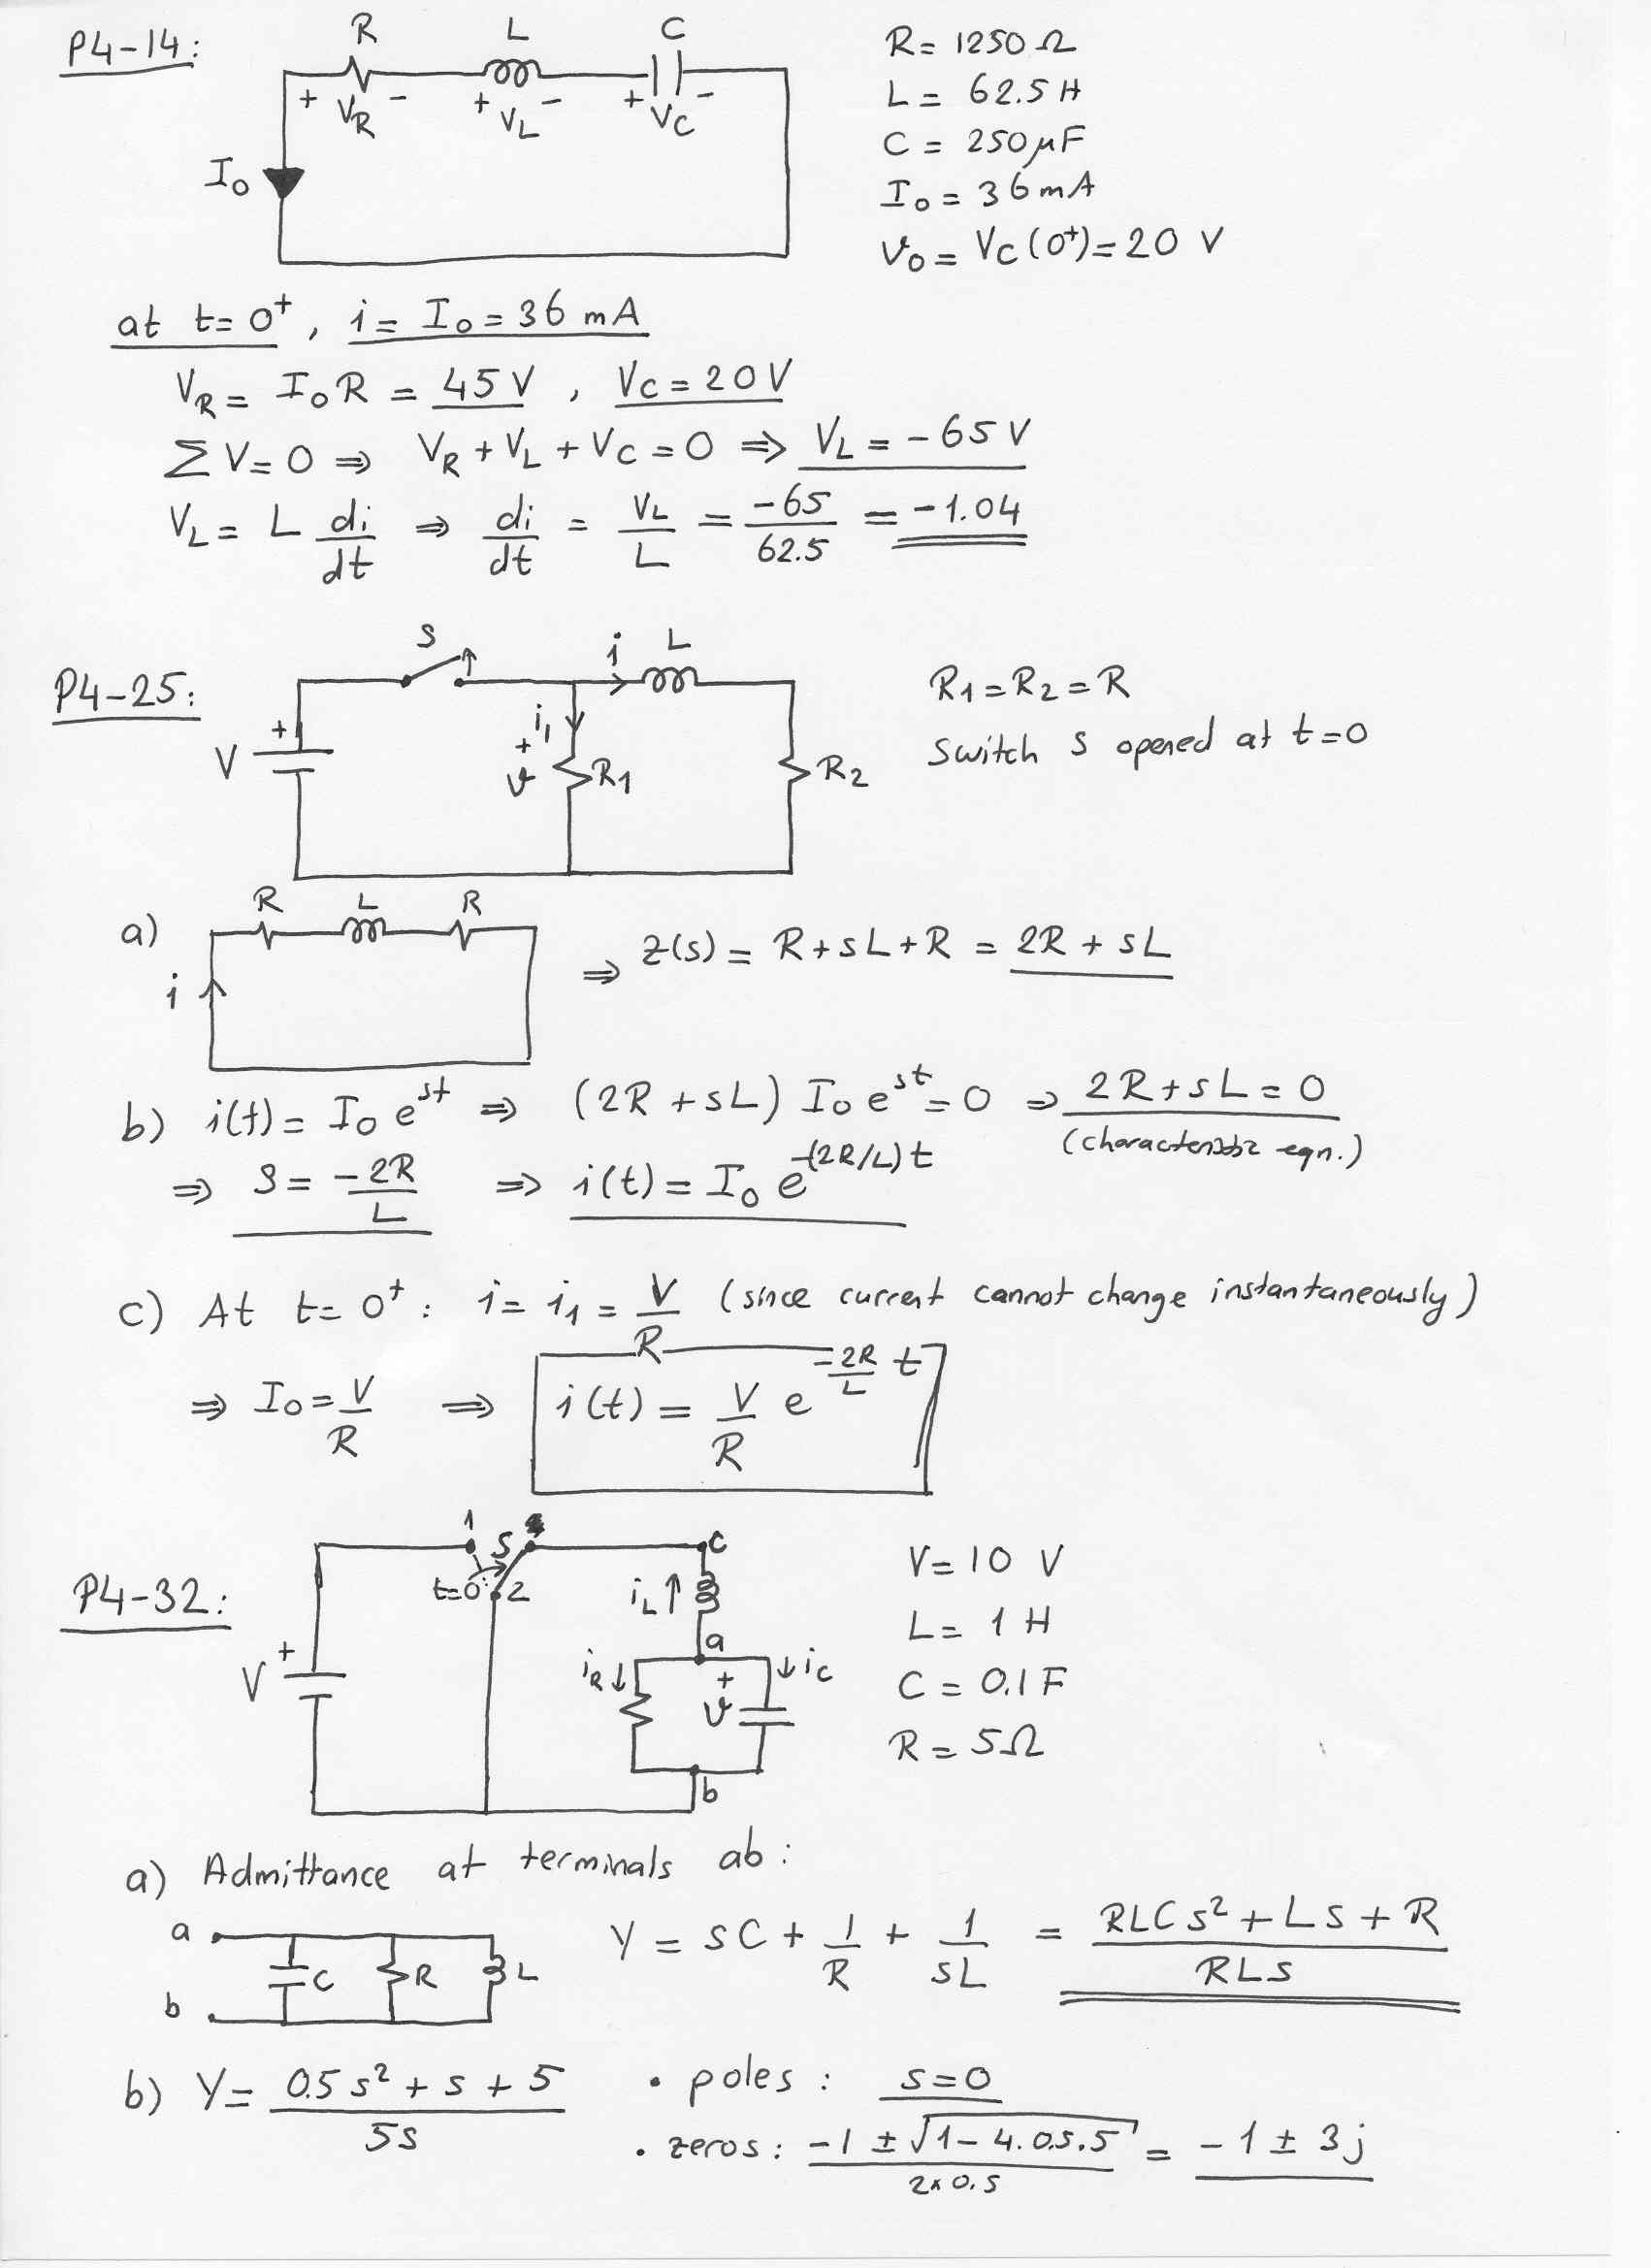 P4-14:
R L C
+ VR - + VL - + VC -
I0
R = 1250 Ω
L = 62.5 H
C = 250 μF
I0 = 36 mA
v0 = VC (0+) = 20 V
at t = 0+, i = I0 = 36 mA
VR = I0 R = 45 V, VC = 20 V
∑ V = 0 ⇒ VR + VL + VC = 0 ⇒ VL = -65 V
VL = L di/dt ⇒ di/dt = VL/L = -65/62.5 = -1.04
P4-25:
S i L
V + i1 + v R1 R2
R1 = R2 = R
Switch S opened at t=0
a) R L R
i
⇒ Z(s) = R + sL + R = 2R + sL
b) i(t) = I0 e^st ⇒ (2R + sL) I0 e^st = 0 ⇒ 2R + sL = 0
(characteristic eqn.)
⇒ s = -2R/L ⇒ i(t) = I0 e^-(2R/L)t
c) At t = 0+ : i = i1 = V/R (since current cannot change instantaneously)
⇒ I0 = V/R ⇒ i(t) = V/R e^-2R/L t
P4-32:
1 S c
t=0 2 iL
a
V + iR + v iC
b
V = 10 V
L = 1 H
C = 0.1 F
R = 5Ω
a) Admittance at terminals ab :
a
C R L
b
Y = sC + 1/R + 1/sL = RLCs² + Ls + R / RLs
b) Y = 0.5s² + s + 5 / 5s
• poles : s = 0
• zeros : -1 ± √1 - 4.0.5.5 / 2x0.5 = -1 ± 3j